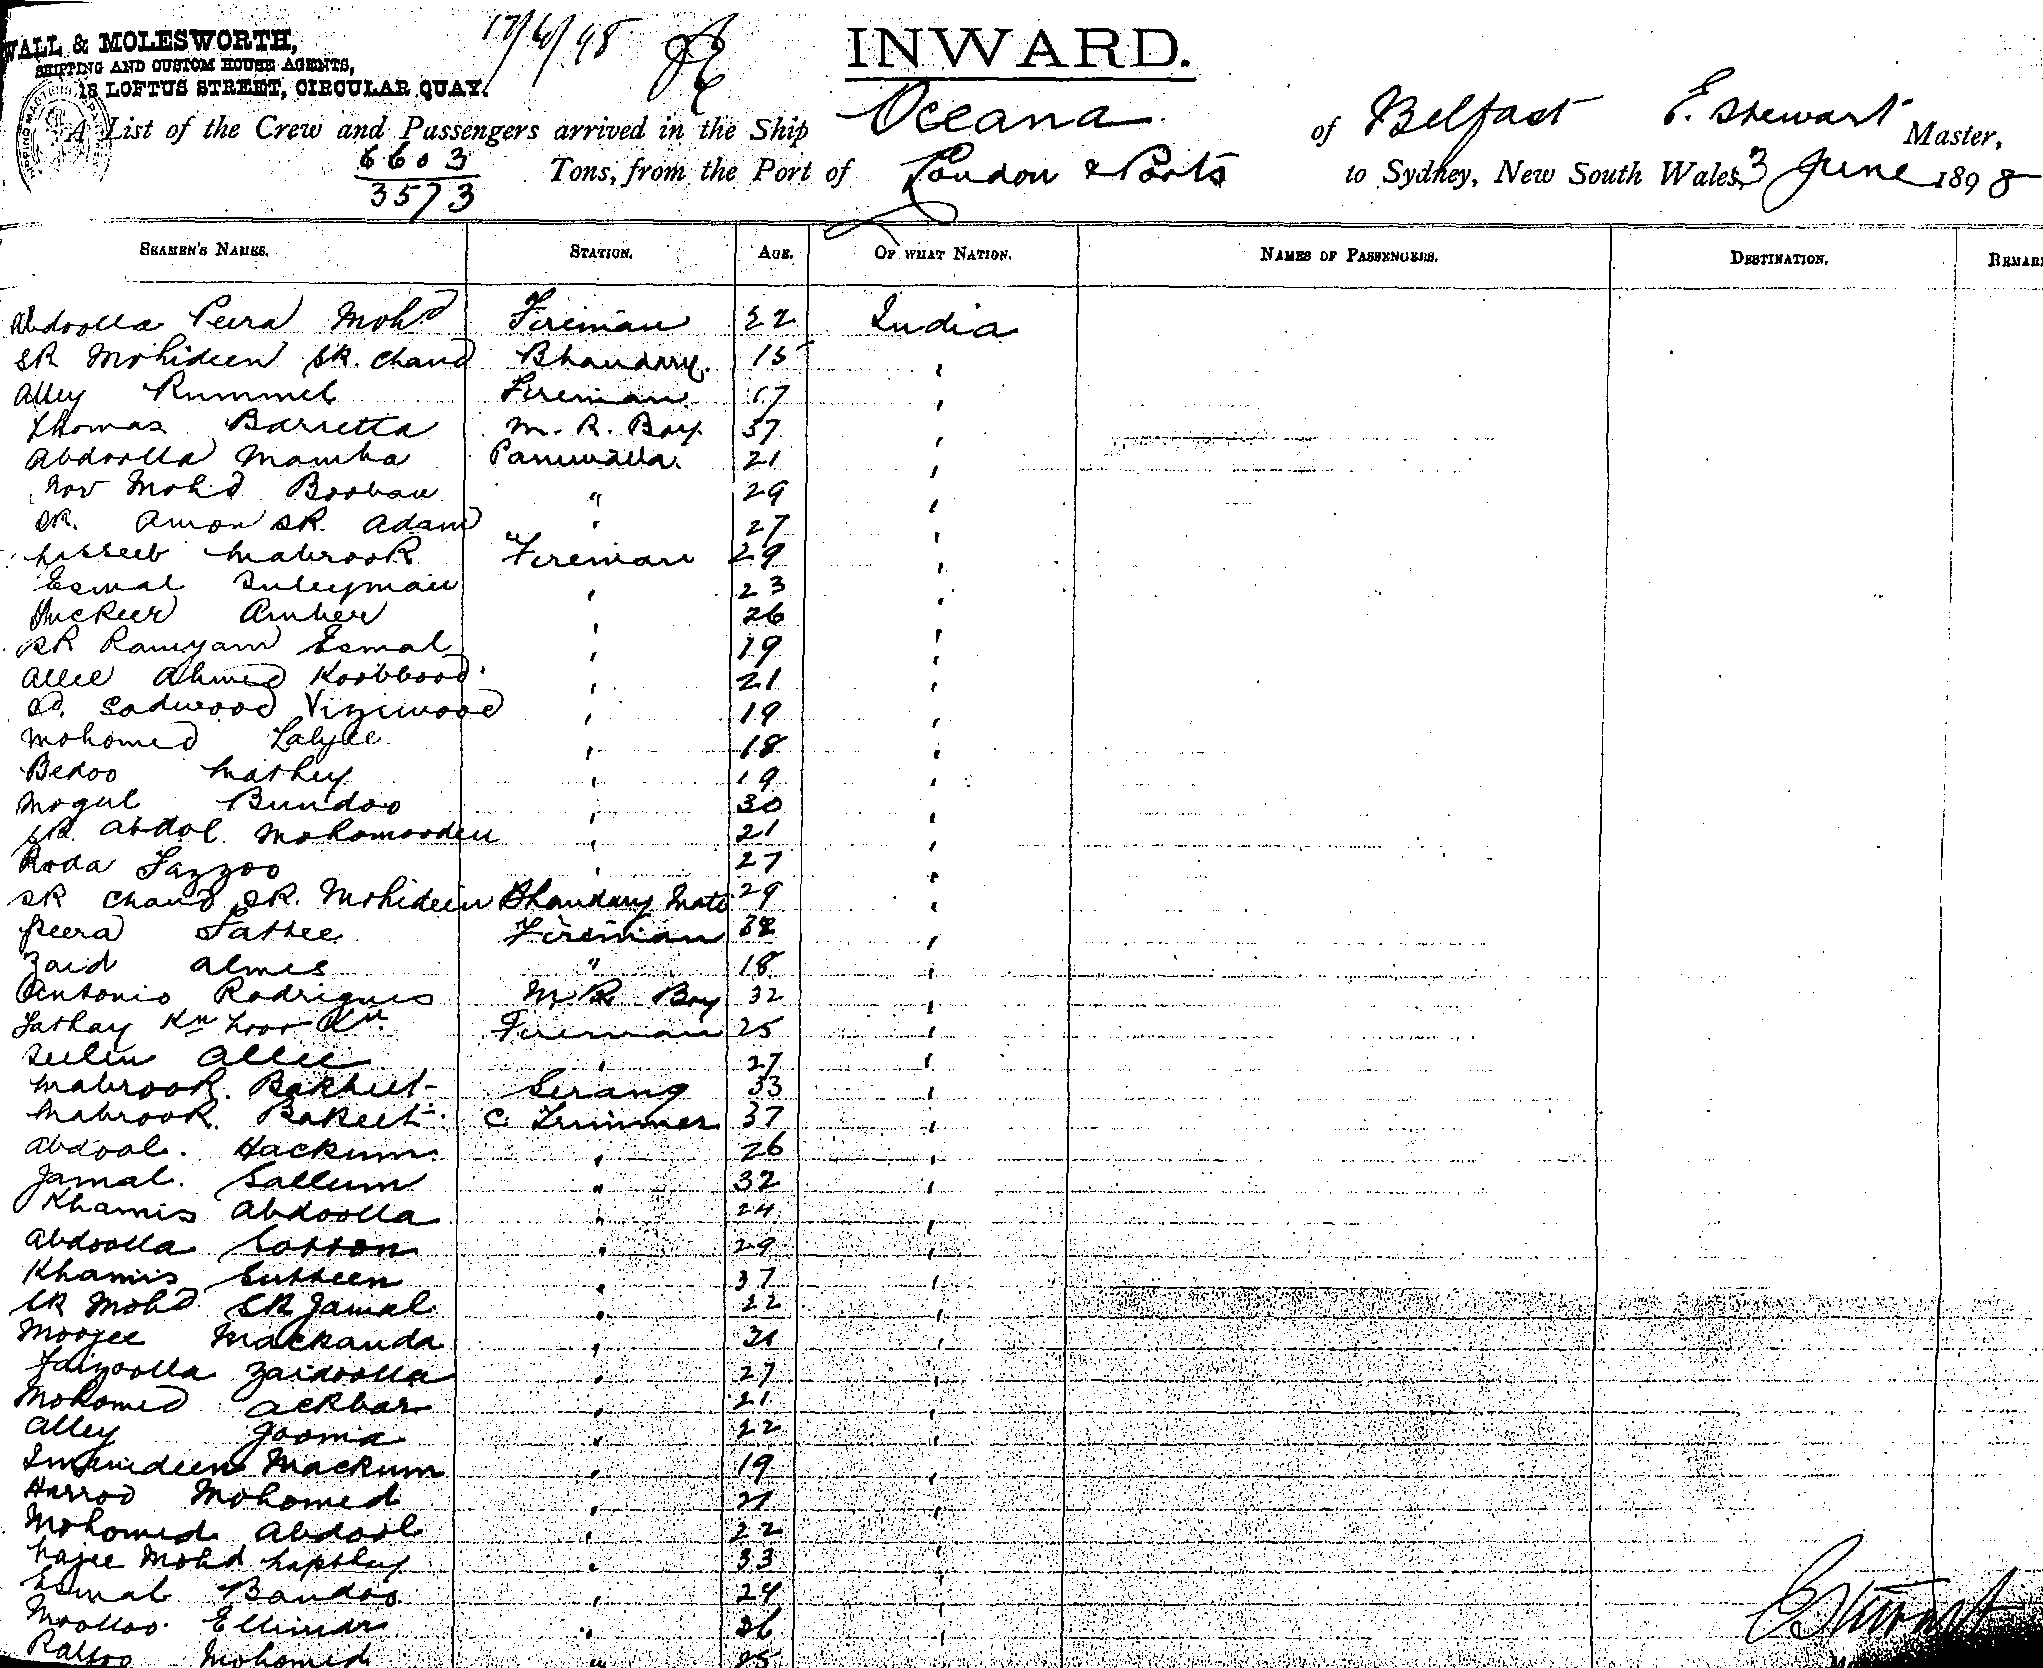 WALL & MOLESWORTH,
SHIPPING AND CUSTOM HOUSE AGENTS,
18 LOFTUS STREET, CIRCULAR QUAY.
17/6/98
INWARD.
A List of the Crew and Passengers arrived in the Ship Oceana of Belfast E. Stewart Master,
6603
3573
Tons, from the Port of London & Ports to Sydney, New South Wales, 3 June 1898
SEAMEN'S NAMES. STATION. AGE. OF WHAT NATION. NAMES OF PASSENGERS. DESTINATION. REMAR
Abdoolla Peera Mohd Fireman 22 India
SK Mohideen SK. Chand Bhandary. 15 "
Alley Rummel Fireman 17 "
Thomas Barretta M. R. Boy 37 "
Abdoolla Mamba Paniwalla. 21 "
Nor Mohd Booban " 29 "
SK. Amon SK. Adam " 27 "
Mabrook Fireman 29 "
Esmal Suleyman " 23 "
Amber " 26 "
SK Ramyam Esmal " 19 "
Allee Ahmed " 21 "
Sd. " 19 "
Mohomed Laljee " 18 "
Bedoo " 19 "
Mogul Bundoo " 30 "
SK. Abdol Mohomooden " 21 "
Roda Fazzoo " 27 "
SK Chand SK. Mohideen Bhandary Mate 29 "
Peera Fattee Fireman 32 "
Zaid Almes " 18 "
Antonio Rodrigues M R Boy 32 "
Fathay Kn Noor Kn. Fireman 25 "
Allee " 27 "
Mabrook. Bakheet Serang 33 "
Mabrook. Bakeet C. Trimmer 37 "
Abdool. Hackum. " 26 "
Jamal. Sallum " 32 "
Khamis Abdoolla " 24 "
Abdoolla Cotton " 29 "
Khamis " 37 "
SK Mohd SK Jamal " 22 "
Moojee Mackanda " 21 "
Faizoolla Zaidoolla " 27 "
Mohomed Ackbar " 21 "
Alley Jooma " 22 "
Mackum " 19 "
Harrod Mohomed " 21 "
Mohomed Abdool " 22 "
Hajee Mohd " 33 "
Esmal Bandoo " 24 "
Moolloo Ellimdr " 36 "
Mohomed " 25
E Stewart